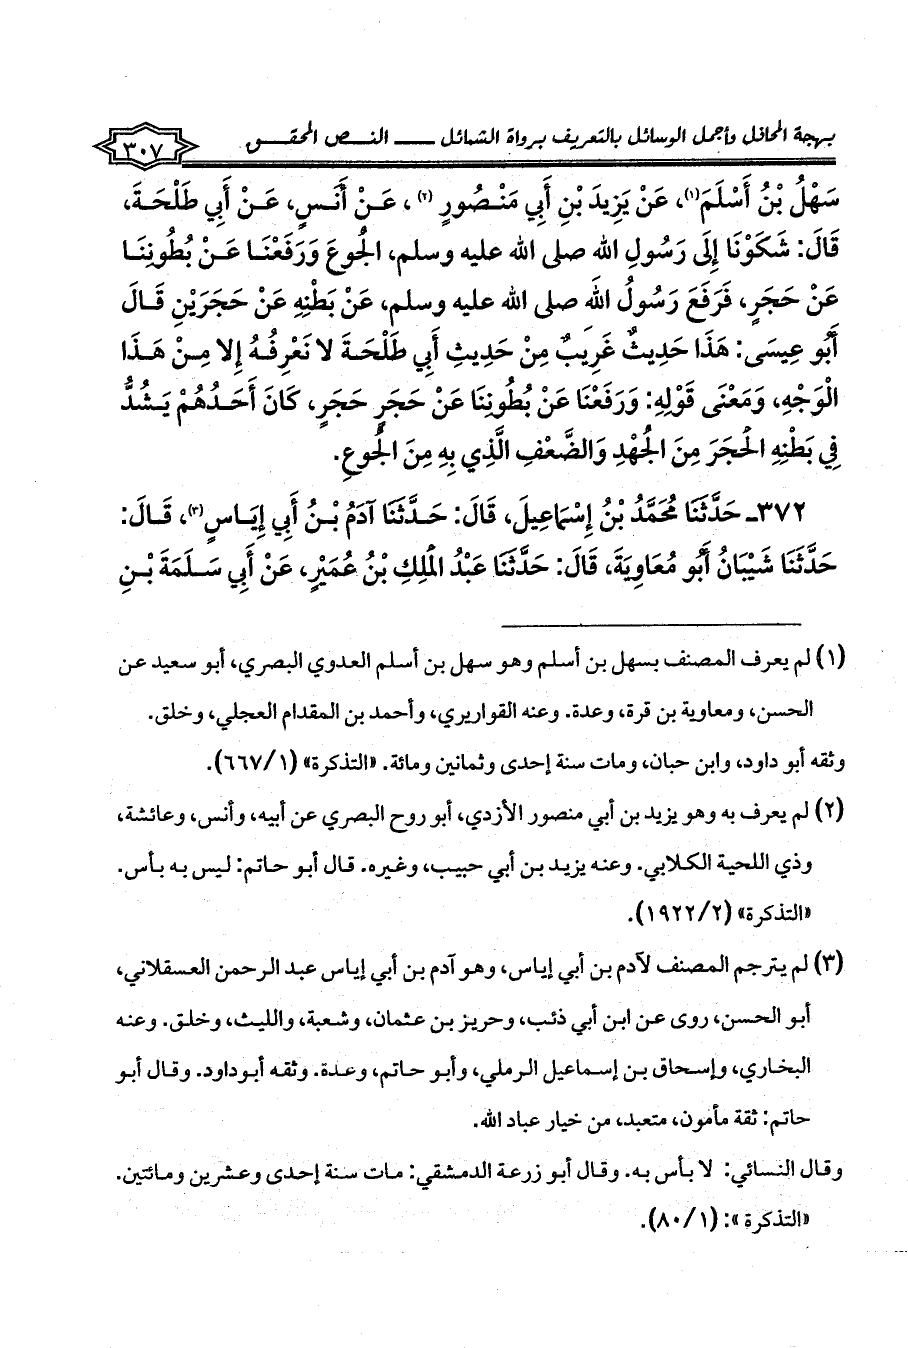 بهجة المحافل وأجمل الوسائل بالتعريف برواة الشمائل ــــ النـص المحقـق
٣٠٧
سَهْلُ بْنُ أَسْلَمَ(١)، عَنْ يَزِيدَ بْنِ أَبِي مَنْصُورٍ (٢)، عَنْ أَنَسٍ، عَنْ أَبِي طَلْحَةَ،
قَالَ: شَكَوْنَا إِلَى رَسُولِ اللهِ صلى الله عليه وسلم، الجُوعَ وَرَفَعْنَا عَنْ بُطُونِنَا
عَنْ حَجَرٍ، فَرَفَعَ رَسُولُ اللهِ صلى الله عليه وسلم، عَنْ بَطْنِهِ عَنْ حَجَرَيْنِ قَالَ
أَبُو عِيسَى: هَذَا حَدِيثٌ غَرِيبٌ مِنْ حَدِيثِ أَبِي طَلْحَةَ لا نَعْرِفُهُ إِلا مِنْ هَذَا
الْوَجْهِ، وَمَعْنَى قَوْلِهِ: وَرَفَعْنَا عَنْ بُطُونِنَا عَنْ حَجَرٍ حَجَرٍ، كَانَ أَحَدُهُمْ يَشُدُّ
فِي بَطْنِهِ الْحَجَرَ مِنَ الْجُهْدِ وَالضَّعْفِ الَّذِي بِهِ مِنَ الْجُوعِ.
٣٧٢ـ حَدَّثَنَا مُحَمَّدُ بْنُ إِسْمَاعِيلَ، قَالَ: حَدَّثَنَا آدَمُ بْنُ أَبِي إِيَاسٍ(٣)، قَالَ:
حَدَّثَنَا شَيْبَانُ أَبُو مُعَاوِيَةَ، قَالَ: حَدَّثَنَا عَبْدُ الْمَلِكِ بْنُ عُمَيْرٍ، عَنْ أَبِي سَلَمَةَ بْنِ
(١) لم يعرف المصنف بسهل بن أسلم وهو سهل بن أسلم العدوي البصري، أبو سعيد عن
الحسن، ومعاوية بن قرة، وعدة. وعنه القواريري، وأحمد بن المقدام العجلي، وخلق.
وثقه أبو داود، وابن حبان، ومات سنة إحدى وثمانين ومائة. «التذكرة» (٦٦٧/١).
(٢) لم يعرف به وهو يزيد بن أبي منصور الأزدي، أبو روح البصري عن أبيه، وأنس، وعائشة،
وذي اللحية الكلابي. وعنه يزيد بن أبي حبيب، وغيره. قال أبو حاتم: ليس به بأس.
«التذكرة» (١٩٢٢/٢).
(٣) لم يترجم المصنف لآدم بن أبي إياس، وهو آدم بن أبي إياس عبد الرحمن العسقلاني،
أبو الحسن، روى عن ابن أبي ذئب، وحريز بن عثمان، وشعبة، والليث، وخلق. وعنه
البخاري، وإسحاق بن إسماعيل الرملي، وأبو حاتم، وعدة. وثقه أبوداود. وقال أبو
حاتم: ثقة مأمون، متعبد، من خيار عباد الله.
وقال النسائي: لا بأس به. وقال أبو زرعة الدمشقي: مات سنة إحدى وعشرين ومائتين.
«التذكرة »: (٨٠/١).